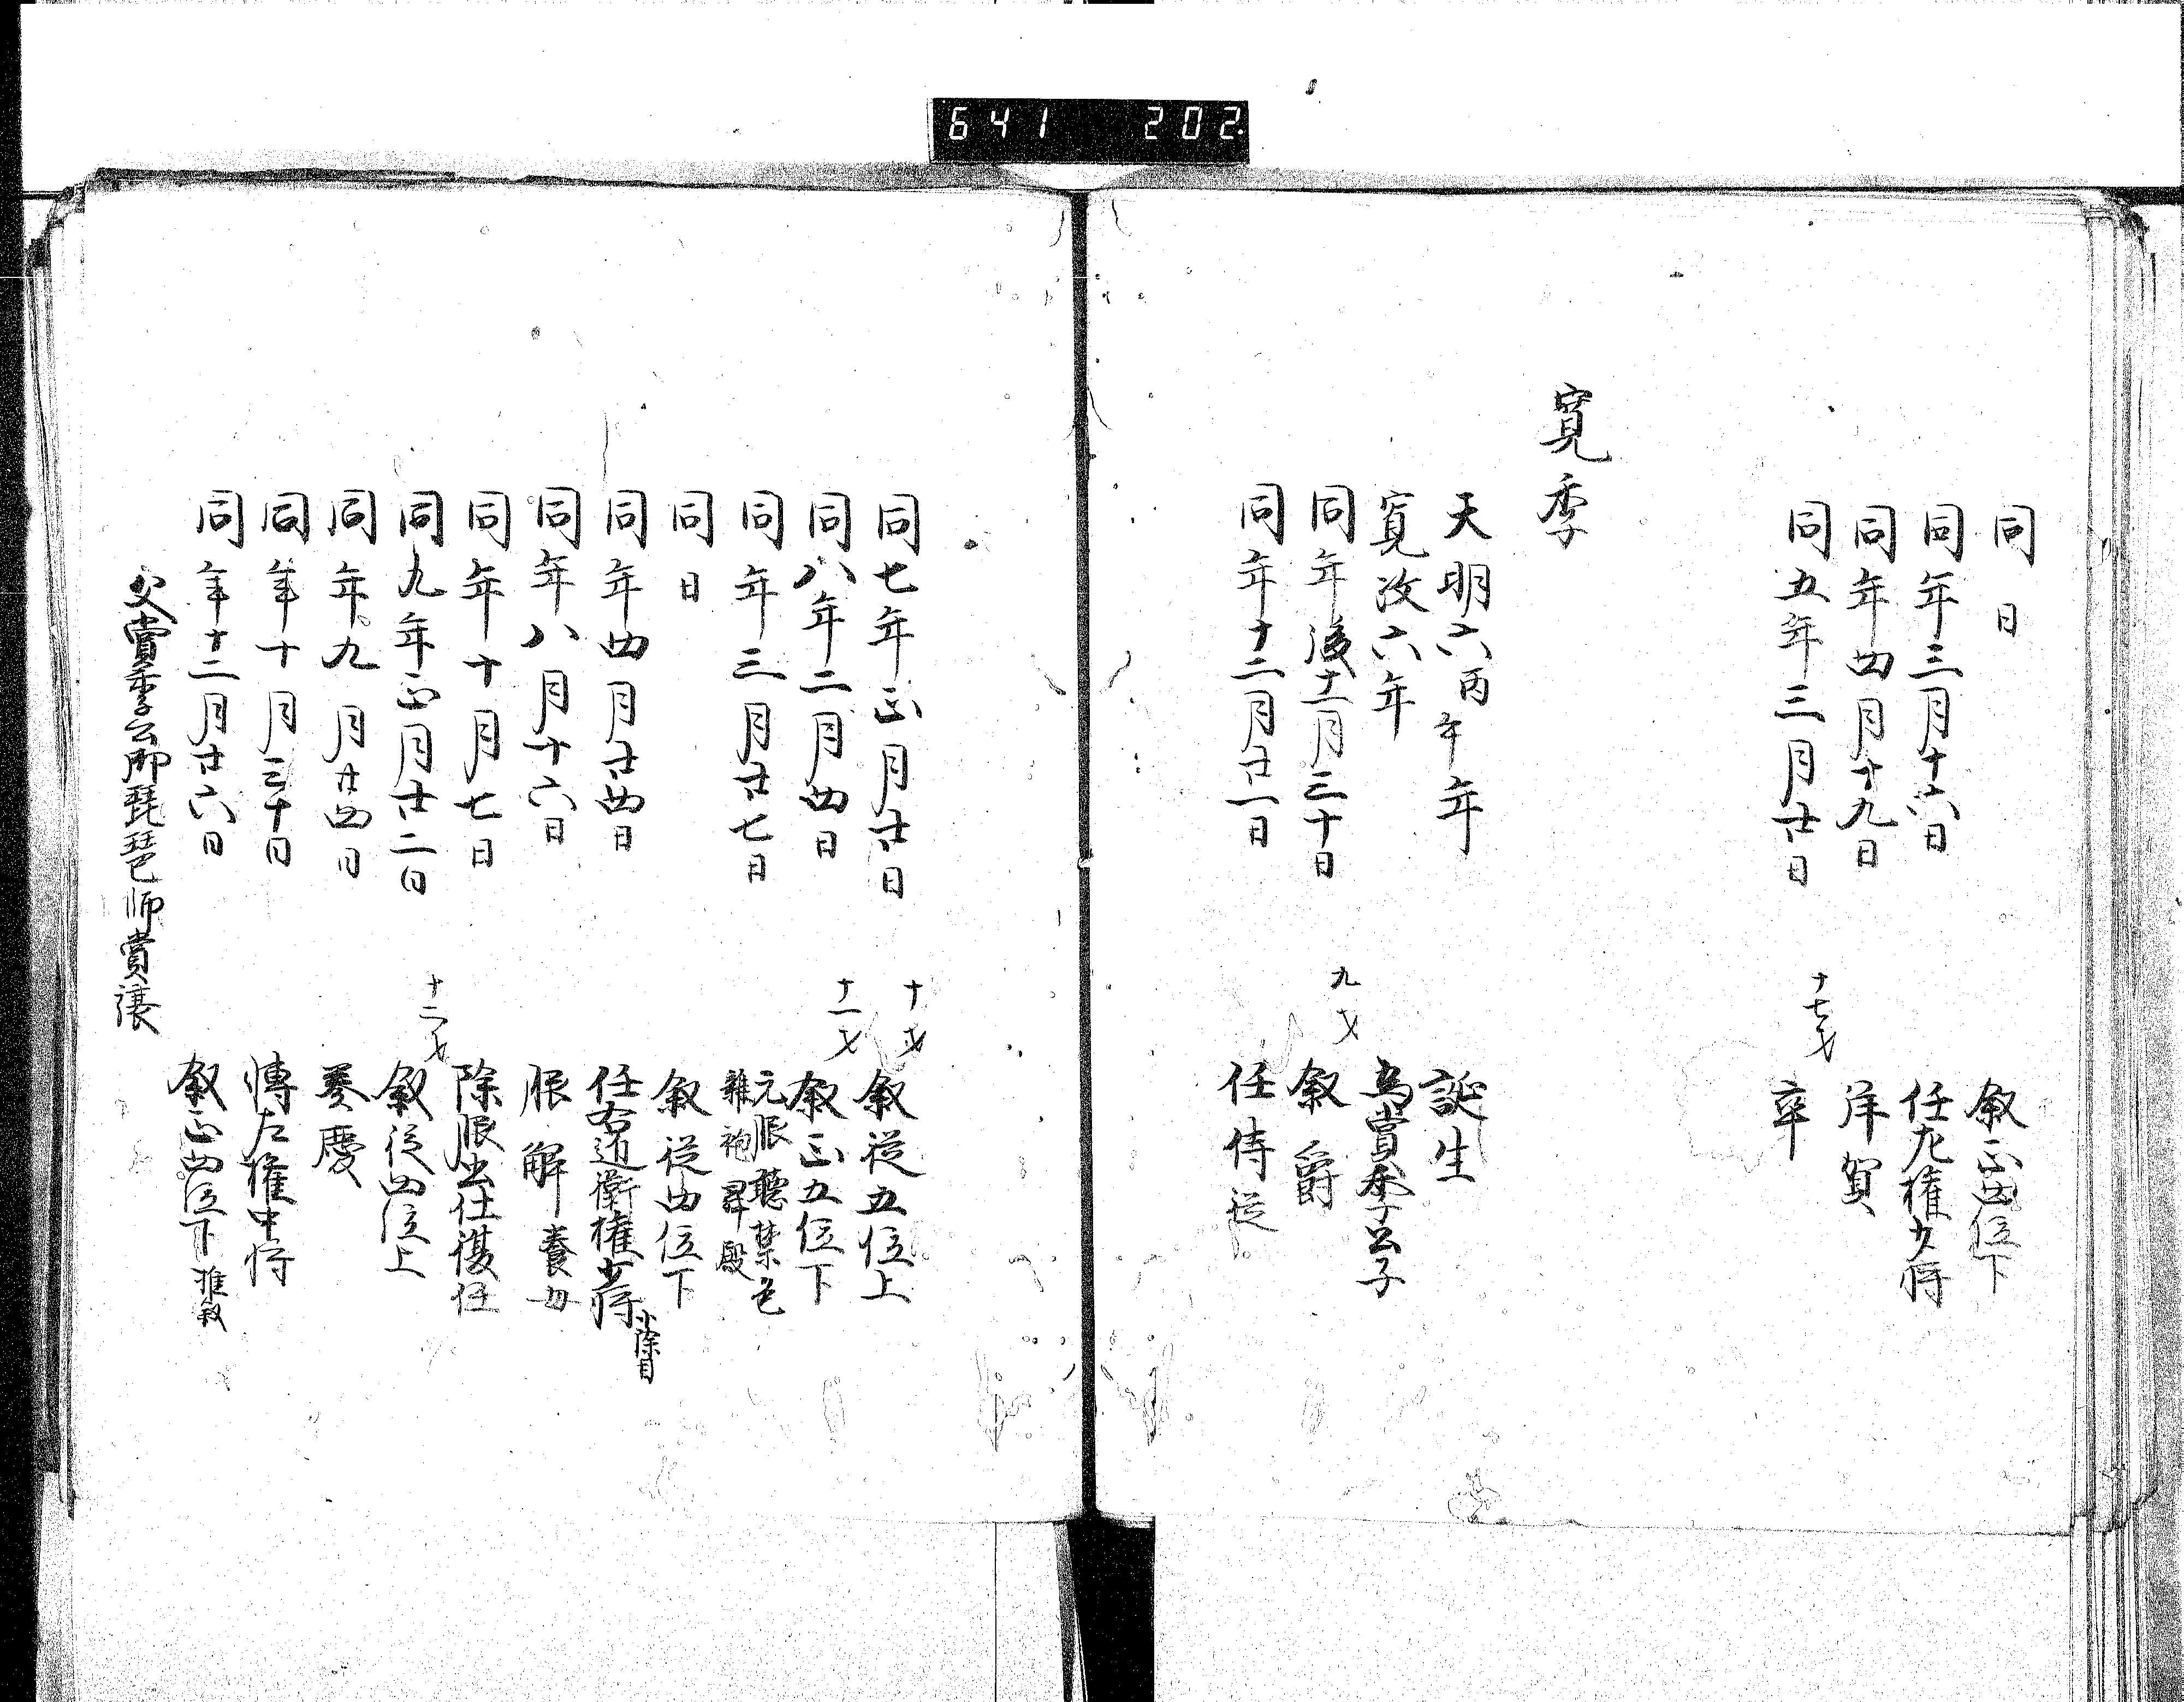 641 202
同日 叙正四位下
同年三月十六日 任左権少将
同年四月十九日 拝賀
同五年三月廿日 十七才 卒
寛季
天明六丙午年 誕生
寛政六年 為實季公子
同年後十一月三十日 九才 叙爵
同年十二月廿一日 任侍従
同七年正月廿日 十才 叙従五位上
同八年二月四日 十一才 叙正五位下
同年三月廿七日 元服聴禁色
雑袍昇殿
同日 叙従四位下
同年四月廿四日 任右近衛権少将 小除目
同年八月十六日 服解 養母
同年十月七日 除服出仕復任
同九年正月廿二日 十二才 叙従四位上
同年九月廿四日 奏慶
同年十月三十日 轉左権中将
同年十二月廿六日 叙正四位下 推叙
父實季公御琵琶師賞譲